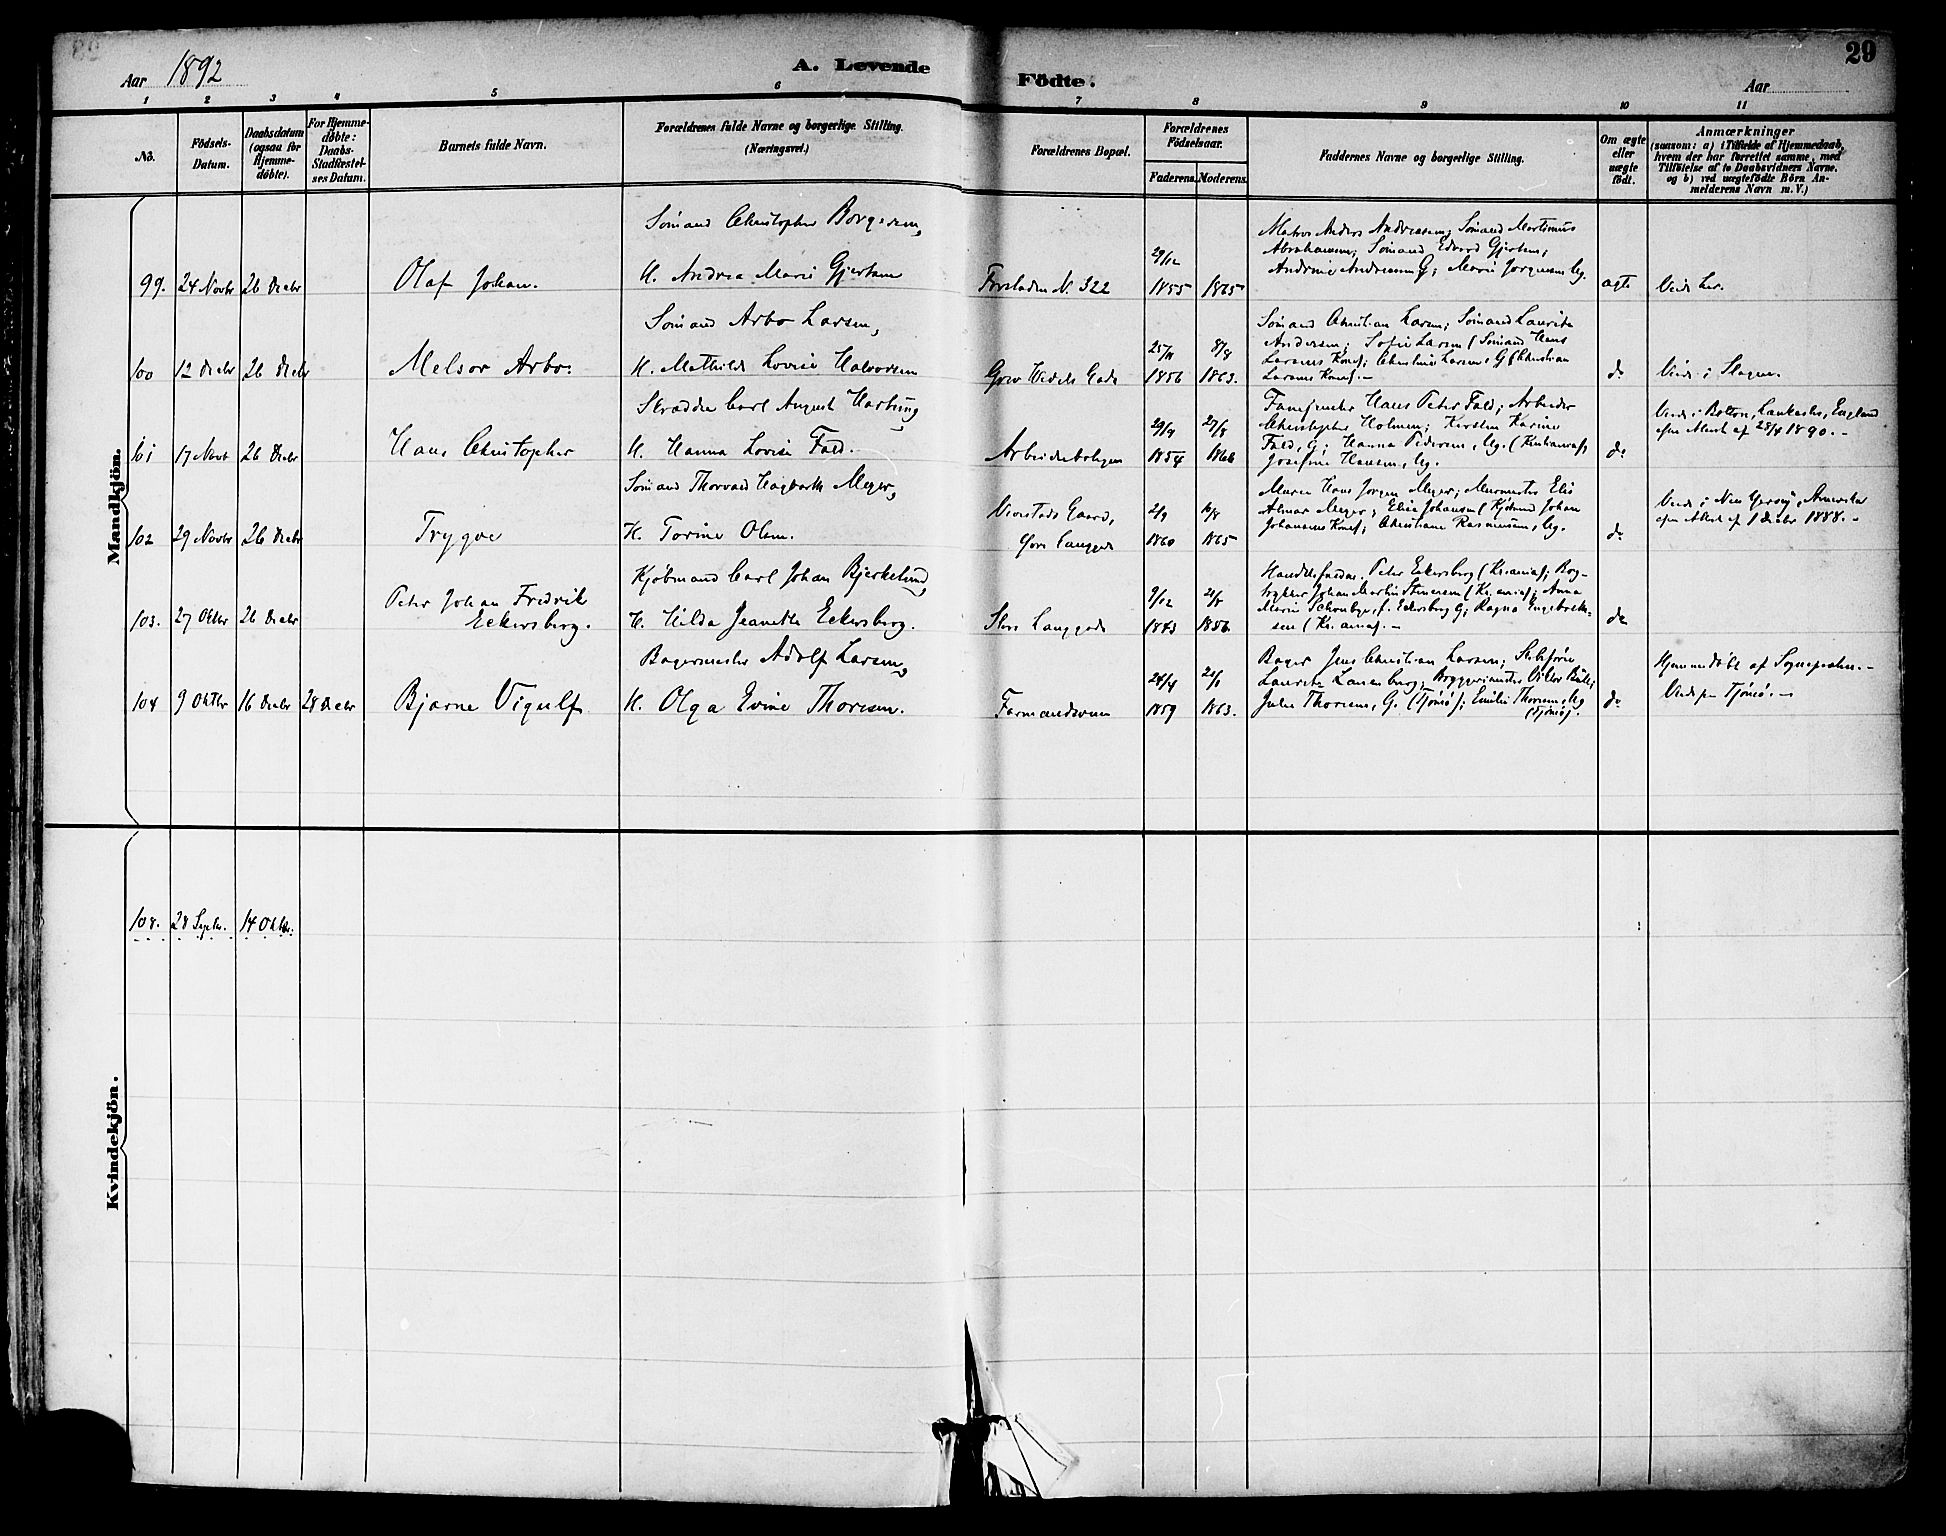 Aar 1892
A. Levende
Födte.
Aar
29
1 2 3 4 5 6 7 8 9 10 11
No.
Födsels-Datum.
Daabsdatum (ogsaa for Hjemmedøbte).
For Hjemmedøbte: Daabs-Stadfæstelses Datum.
Barnets fulde Navn.
Forældrenes fulde Navne og borgerlige Stilling.
(Næringsvei.)
Forældrenes Bopæl.
Forældrenes Födselsaar.
Faderens. Moderens.
Faddernes Navne og borgerlige Stilling.
Om ægte eller uægte født.
Anmærkninger
(saasom: a) i Tilfælde af Hjemmedaab,
hvem der har forrettet samme, med
Tilføielse af to Daabsvidners Navne.
og b) ved uægtefödte Börn An-
melderens Navn m. V.)
Mandkjön.
Sømand Christopher Borgersen,
99. 24 Novbr 26 Decbr Olaf Johan. H. Andrea Marie Gjertsen
Forstaden N. 322
29/12
1855 1865
Matros Anders Andreassen; Sømand Martinius
Abrahamsen; Sømand Edvard Gjertsen;
Andrine Andreassen G; Marie Jørgensen Ug.
ægte
Viede her.
Sømand Arbo Larsen,
100 12 Decbr 26 Decbr Melsor Arbo. H. Mathilde Lovise Halvorsen
Grev Wedels Gade
25/11 8/8
1856 1863.
Sømand Christian Larsen; Sømand Laurits
Andersen; Sofie Larsen (Sømand Hans
Larsens Kone); Christine Larsens G (Christian
Larsens Kone). —
do
Viede i Slagen.
Skrædder Carl August Hartung
101 17 Novb 26 Decbr Hans Christopher H. Hanna Lovise Fald.
Arbeiderboligen
29/9 27/8
1854 1866
Hans Peter Fald; Arbeider
Christopher Holmen; Kirsten Karine
Fald, G; Hanna Pedersen, Ug. (Kristiania);
Josefine Hansen, Ug.
do
Viede i Bolton, Lankaster, England
efter Attest af 28/4 1890. —
Sømand Thorvald Hagbarth Meyer,
102 29 Novbr 26 Decbr Trygve H. Torine Olsen.
Gaard,
2/9
1860 1865
Hans Jørgen Meyer; Murmester Elis
Almar Meyer; Elise Johansen (Kjøbmd Johan
Johansens Kone); Christiane Rasmussen, Ug.
do
Viede i New Yersey, Amerika
efter Attest af 1 Decbr 1888. —
Kjøbmand Carl Johan Bjerkelund,
103. 27 Oktbr 26 Decbr Peter Johan Fredrik
Eckersberg. H. Hilda Jeanette Eckersberg.
Store Langgade
9/12
1843 1856
Peter Eckersberg (Kr.ania); Bog-
trykker Johan Martin Stenersen (Kr.ania); Anna
Marie Schonbye, f. Eckersberg G; Ragna Engebret-
sen (Kr.ania). —
do
Bagermester Adolf Larsen,
104 9 Oktbr 16 Decbr 28 Decbr Bjarne Vigulf H. Olga Evine Thoresen.
Farmandsveien
1859 1863.
Bager Jens Christian Larsen; Skibsfører
Lauritz Lauenborg; Bryggerimester Viktor
Julie Thoresen, G. (Tjømø); Emilie Thoresen, Ug
(Tjømø).
do
Hjemmedøbt af Sognepresten. —
Viede paa Tjømø. —
Kvindekjön.
108. 28 Septbr. 14 Oktbr.